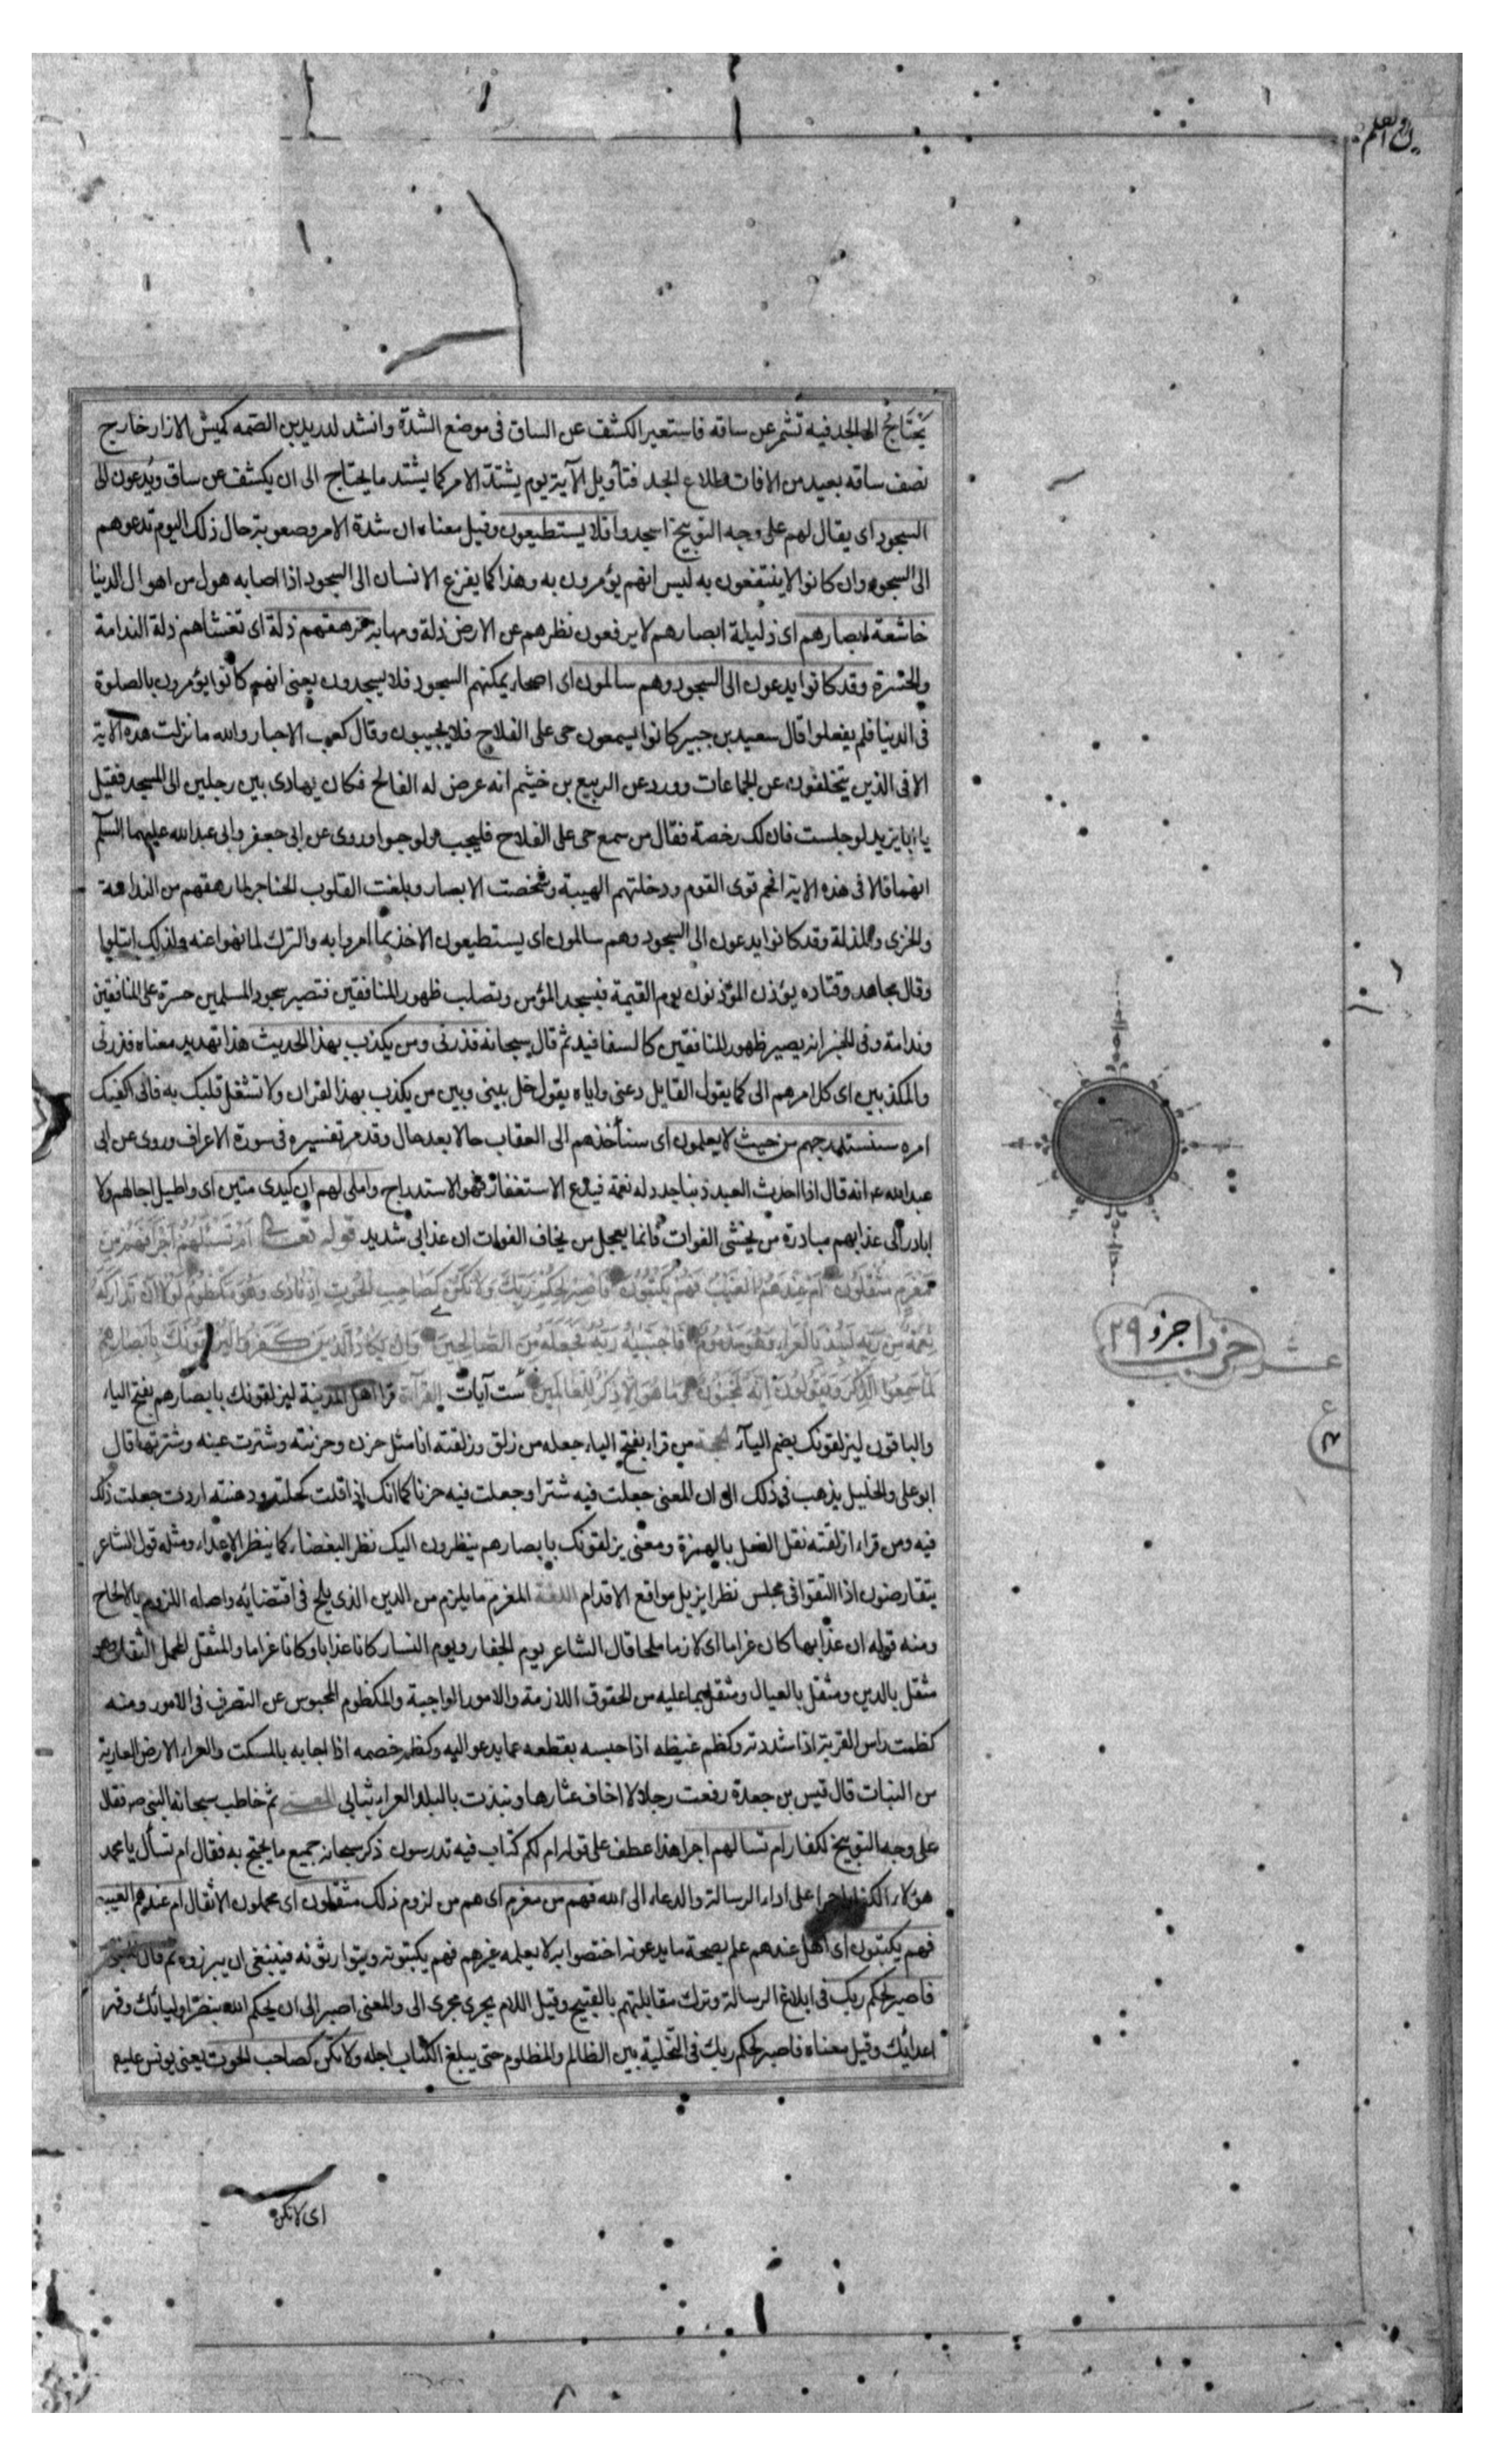 ن والقلم
يحتاج الى الجد فيه تشمر عن ساقه فاستعير الكشف عن الساق فى موضع الشدة وانشد لدريد بن الصمه كميش الازار خارج
نصف ساقه بعيد من الافات طلاع انجد فتأويل الآية يوم يشتد الامر كما يشتد ما يحتاج الى ان يكشف عن ساق ويدعون الى
السجود اى يقال لهم على وجه التوبيخ اسجدوا فلا يستطيعون وقيل معناه ان شدة الامر وصعوبة حال ذلك اليوم تدعوهم
الى السجود وان كانوا لا ينتفعون به ليس انهم يؤمرون به وهذا كما يفزع الانسان الى السجود اذا اصابه هول من اهوال الدنيا
خاشعة ابصارهم اى ذليلة ابصارهم لا يرفعون نظرهم عن الارض ذلة ومهابة ترهقهم ذلة اى تغشاهم ذلة الندامة
والحسرة وقد كانوا يدعون الى السجود وهم سالمون اى اصحاء يمكنهم السجود فلا يسجدون يعنى انهم كانوا يؤمرون بالصلوة
فى الدنيا فلم يفعلوا قال سعيد بن جبير كانوا يسمعون حى على الفلاح فلا يجيبون وقال كعب الاحبار والله ما نزلت هذه الاية
الا فى الذين يتخلفون عن الجماعات وورد عن الربيع بن خيثم انه عرض له الفالج فكان يهادى بين رجلين الى المسجد فقيل
يا ابا يزيد لو جلست فان لك رخصة فقال من سمع حى على الفلاح فليجب ولو حبوا وروى عن ابى جعفر وابى عبدالله عليهما السلم
انهما قالا فى هذه الاية افحم القوم ودخلتهم الهيبة وشخصت الابصار وبلغت القلوب الحناجر لما رهقهم من الندامة
والخزى والمذلة وقد كانوا يدعون الى السجود وهم سالمون اى يستطيعون الاخذ بما امروا به والترك لما نهوا عنه ولذلك ابتلوا
وقال مجاهد وقتاده يؤذن المؤذنون يوم القيمة فيسجد المؤمن وتصلب ظهور المنافقين فتصير سجود المسلمين حسرة على المنافقين
وندامة وفى الخبر انه يصير ظهور المنافقين كالسفافيد ثم قال سبحانه فذرنى ومن يكذب بهذا الحديث هذا تهديد معناه فذرنى
والمكذبين اى كل امرهم الى كما يقول القايل دعنى واياه يقول خل بينى وبين من يكذب بهذا القران ولا تشغل قلبك به فانى اكفيك
امره سنستدرجهم من حيث لا يعلمون اى سنأخذهم الى العقاب حالا بعد حال وقد مر تفسيره فى سورة الاعراف وروى عن ابى
عبدالله ع انه قال اذا احدث العبد ذنبا جدد له نعمة فيدع الاستغفار فهو الاستدراج واملى لهم ان كيدى متين اى واطيل اجالهم ولا
ابادر الى عذابهم مبادرة من يخشى الفوات فانما يعجل من يخاف الفوات ان عذابى شديد قوله تعالى ام تسئلهم اجرا فهم من
مغرم مثقلون ام عندهم الغيب فهم يكتبون فاصبر لحكم ربك ولا تكن كصاحب الحوت اذ نادى وهو مكظوم لولا ان تداركه
نعمة من ربه لنبذ بالعراء وهو مذموم فاجتبيه ربه فجعله من الصالحين وان يكاد الذين كفروا ليزلقونك بابصارهم
لما سمعوا الذكر ويقولون انه لمجنون وما هو الا ذكر للعالمين ست آيات القرآة قرا اهل المدينة ليزلقونك بابصارهم بفتح الياء
والباقون ليزلقونك بضم الياء الحجة من قراء بفتح الياء جعله من زلق وزلقته انا مثل حزن وحزنته وشترت عينه وشترتها قال
ابو على والخليل يذهب فى ذلك الى ان المعنى جعلت فيه شترا وجعلت فيه حزنا كما انك اذا قلت كحلته ودهنته اردت جعلت ذلك
فيه ومن قراء ازلقته نقل الفعل بالهمزة ومعنى يزلقونك بابصارهم ينظرون اليك نظر البغضاء كما ينظر الاعداء ومثله قول الشاعر
يتقارضون اذا التقوا فى مجلس نظرا يزيل مواقع الاقدام اللغة المغرم ما يلزم من الدين الذى يلح فى اقتضائه واصله اللزوم بالالحاح
ومنه قوله ان عذابها كان غراما اى لازما ملحا قال الشاعر يوم الجفار ويوم النسار كانا عذابا وكانا غراما والمثقل المحمل الثقل وهو
مثقل بالدين ومثقل بالعيال ومثقل بما عليه من الحقوق اللازمة والامور الواجبة والمكظوم المحبوس عن التصرف فى الامور ومنه
كظمت راس القربة اذا شددته وكظم غيظه اذا حبسه بقطعه عما يدعو اليه وكظم خصمه اذا اجابه بالمسكت والعراء الارض العارية
من النبات قال قيس بن جعدة رفعت رجلا لا اخاف عثارها ونبذت بالبلد العراء ثيابى المعنى ثم خاطب سبحانه النبى ص فقال
على وجه التوبيخ للكفار ام تسالهم اجرا هذا عطف على قوله ام لكم كتاب فيه تدرسون ذكر سبحانه جميع ما يحتج به فقال ام تسأل يا محمد
هؤلاء الكفار اجرا على اداء الرسالة والدعاء الى الله فهم من مغرم اى هم من لزوم ذلك مثقلون اى محملون الاثقال ام عندهم الغيب
فهم يكتبون اى اهل عندهم علم بصحة ما يدعونه اختصوا به لا يعلمه غيرهم فهم يكتبونه ويتوارثونه فينبغى ان يبرزوه ثم قال للنبى
فاصبر لحكم ربك فى ابلاغ الرسالة وترك مقابلتهم بالقبيح وقيل اللام يجرى مجرى الى والمعنى اصبر الى ان يحكم الله بنصر اوليائك وقهر
اعدائك وقيل معناه فاصبر لحكم ربك فى التخلية بين الظالم والمظلوم حتى يبلغ الكتاب اجله ولا تكن كصاحب الحوت يعنى يونس عليه
عشر حزب ا جزو ٢٩
ع
اى لا تكن